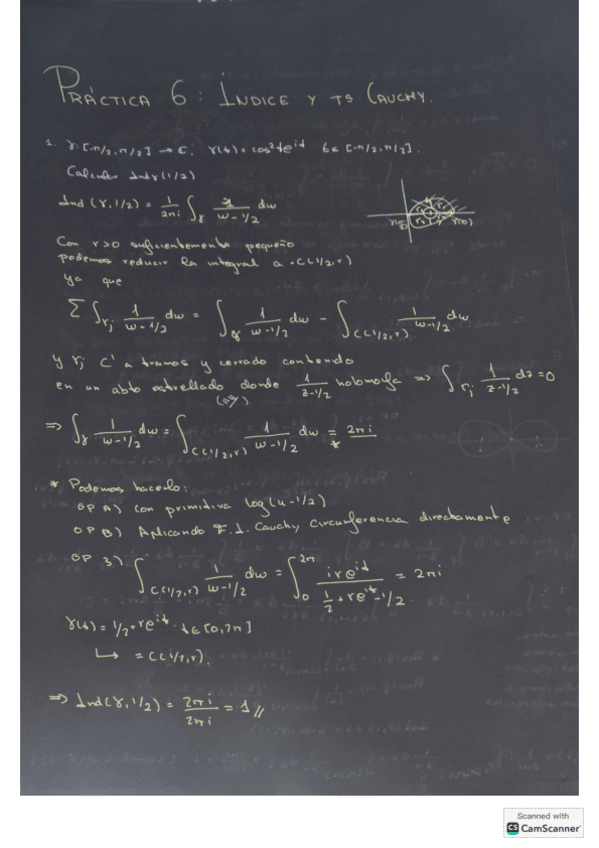 PRÁCTICA 6: ÍNDICE Y TS CAUCHY.
1. γ: [-π/2, π/2] → ℂ, γ(t) = cos²t e^{it} t ∈ [-π/2, π/2].
Calcular Ind γ(1/2)
Ind (γ, 1/2) = 1/2πi ∫_γ 1/(w - 1/2) dw
Con r>0 suficientemente pequeño
podemos reducir la integral a C(1/2, r)
ya que
Σ ∫_{γj} 1/(w - 1/2) dw = ∫_γ 1/(w - 1/2) dw - ∫_{C(1/2, r)} 1/(w - 1/2) dw
y γj C' a tramos y cerrado contenido
en un abto estrellado donde 1/(z - 1/2) holomorfa ⇒ ∫_{γj} 1/(z - 1/2) dz = 0
⇒ ∫_γ 1/(w - 1/2) dw = ∫_{C(1/2, r)} 1/(w - 1/2) dw =* 2πi
* Podemos hacerlo:
OP A) con primitiva log(u - 1/2)
OP B) Aplicando F. I. Cauchy circunferencia directamente
OP 3) ∫_{C(1/2, r)} 1/(w - 1/2) dw = ∫_0^{2π} ire^{it}/(1/2 + re^{it} - 1/2) = 2πi
γ(t) = 1/2 + re^{it} t ∈ [0, 2π]
↳ = C(1/2, r).
⇒ Ind(γ, 1/2) = 2πi/2πi = 1 //
Scanned with
CS CamScanner